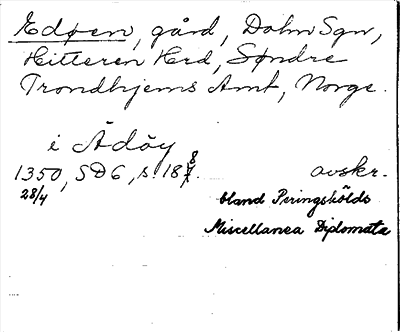 Edøen, gård, Dolm Sgn,
Hitteren Hrd, Søndre
Trondhjems Amt, Norge.
i Ådöy
1350, SD6, s. 188. avskr.
28/4 bland Peringskölds
Miscellanea Diplomata